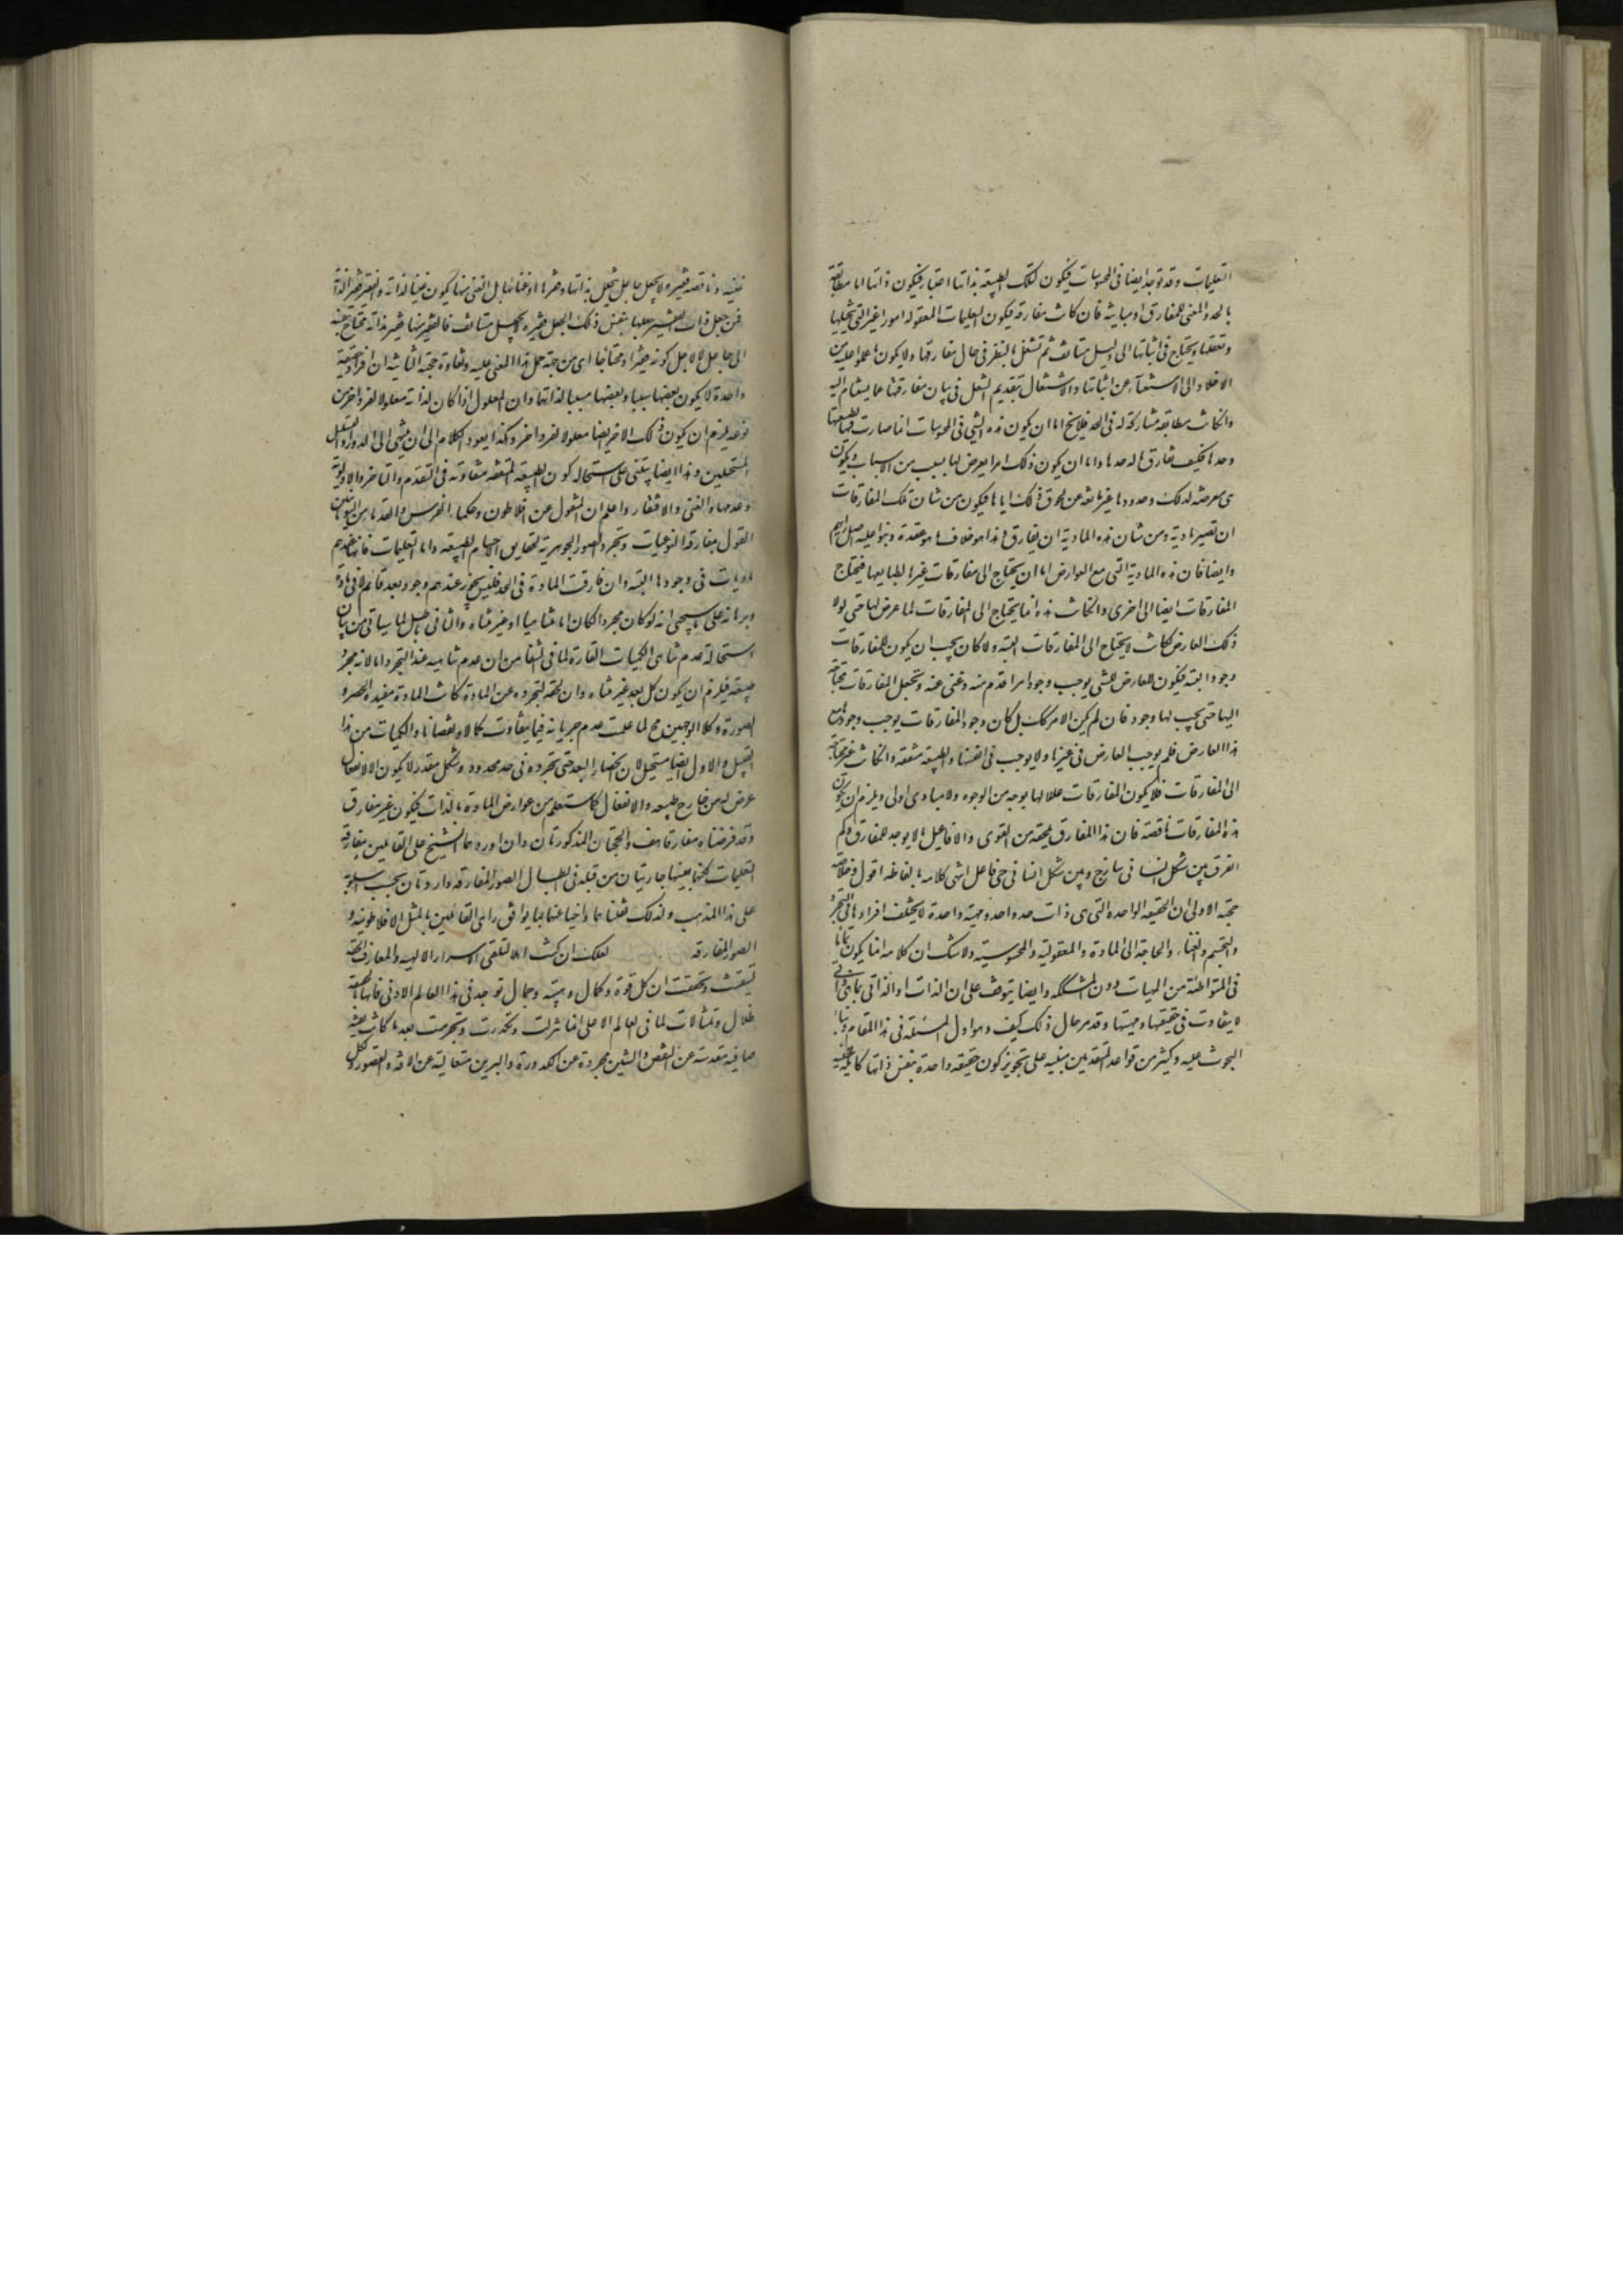 التعليمات وقد توجد ايضا فى المحسوسات فيكون لتلك الطبيعة بذاتها اعتبار فيكون ذاتها اما مطابقة
بالحد والمعنى للمفارق او مباينة فان كانت مفارقة فيكون التعليمات المعقولة امورا غير التى نتخيلها
ونعقلها ونحتاج فى اثباتها الى دليل مستانف ثم نشتغل بالنظر فى حال مفارقتها ولا يكون ما عملوا عليه من
الاخلاد الى الاستغناء عن اثباتها والاشتغال بتقديم الشغل فى بيان مفارقتها عملا يستنام اليه
وان كانت مطابقة مشاركة له فى الحد فلا يخ اما ان يكون هذه التى فى المحسوسات انما صارت فيها لطبيعتها
وحدها فكيف تفارق ما له حدها واما ان يكون ذلك امرا يعرض لها بسبب من الاسباب ويكون
هى معرضة لذلك وحدودها غير مانعة عن لحوق ذلك اياها فيكون من شان تلك المفارقات
ان تصير مادية ومن شان هذه المادية ان يفارق وهذا هو خلاف ما عقدوه وبنوا عليه اصل رايهم
وايضا فان هذه المادية التى مع العوارض اما ان يحتاج الى مفارقات غيرها لطبايعها فيحتاج
المفارقات ايضا الى اخرى وان كانت هذه انما يحتاج الى المفارقات لما عرض لها حتى لولا
ذلك العارض لكانت لا يحتاج الى المفارقات البتة ولا كان يجب ان يكون للمفارقات
وجود البتة فيكون العارض للشى يوجب وجود امر اقدم منه وغنى عنه ويجعل المفارقات محتاجة
اليها حتى يجب لها وجود فان لم يكن الامر كك بل كان وجود المفارقات يوجب وجودها مع
هذا العارض فلم يوجب العارض فى غيرها ولا يوجب فى انفسها والطبيعة متفقة وان كانت غير محتاجة
الى المفارقات فلا يكون المفارقات عللا لها بوجه من الوجوه ولا مبادى اولى ويلزم ان يكون
هذه المفارقات ناقصة فان هذا المفارق يلحقه من القوى والافاعيل ما لا يوجد للمفارق وكم
الفرق بين شكل انسانى ساذج وبين شكل انسانى حى فاعل انتهى كلامه بالفاظه اقول وخلاصة
حجته الاولى ان الحقيقة الواحدة التى هى ذات حد واحد ومهية واحدة لا يختلف افرادها فى التجرد
والتجسم والغناء والحاجة الى المادة والمعقولية والمحسوسية ولا شك ان كلامه انما يكون تماما
فى المتواطئة من المهيات دون المشككة وايضا يتوقف على ان الذات او الذاتى بما هى ذاتى
لا يتفاوت فى حقيقتها ومهيتها وقد مر حال ذلك كيف وهو اول المسئلة فى هذا المقام وبناء
البحوث عليه وكثير من قواعد المتقدمين مبنية على تجويز كون حقيقة واحدة بنفس ذاتها كاملة غنية
غنية وناقصة فقيرة لا بجعل جاعل يتخلل بذاتها وفقرها او غنائها بل الغنى منها يكون غنيا لذاته والفقير فقيرا لذاته
فمن جعل ذات الفقير جعلها بنفس ذلك الجعل فقيرة لا بجعل مستانف فالفقير منها فقير بذاته محتاج بنفسه
الى جاعل لا لاجل كونه فقيرا ومحتاجا اى من جهة حمل هذا المعنى عليه ونقاوة حجته الثانية ان افراد حقيقة
واحدة لا يكون بعضها سببا وبعضها مسببا لذاتها وان المعلول اذا كان لذاته معلولا لفرد اخر من
نوعه يلزم ان يكون ذلك الاخر ايضا معلولا لفرد اخر وهكذا يعود الكلام الى ان ينتهى الى الدور او التسلسل
المستحيلين وهذا ايضا يبتنى على استحالة كون الطبيعة المتفقة متفاوتة فى التقدم والتاخر والاولوية
وعدمها والغنى والافتقار واعلم ان المنقول عن افلاطون وحكماء الفرس والقدماء من اليونانيين
القول بمفارقة النوعيات وتجرد الصور الجوهرية لحقايق الاجسام الطبيعة واما التعليمات فانها عندهم
ماديات فى وجودها البتة وان فارقت المادة فى الحد فليس يجوز عندهم وجود بعد قائم لا فى مادة
وبرهانه على ما سيجئ انه لو كان مجردا لكان اما متناهيا او غير متناه والثانى باطل لما سياتى من بيان
استحالة عدم تناهى الكميات القارة لما فى الشفا من ان عدم تناهيه عند التجرد اما لانه مجرد
طبيعته فيلزم ان يكون كل بعد غير متناه وان لحقه لتجرده عن المادة كانت المادة مفيدة الحصر و
الصورة وكلا الوجهين مح لما علمت عدم جريانه فيما يتفاوت كمالا ونقصانا والكميات من هذا
القبيل والاول ايضا مستحيل لان انحصار البعد حتى تجرده فى حد محدود وشكل مقدر لا يكون الا لانفعال
عرض له من خارج طبيعته والانفعال كما ستعلم من عوارض المادة بالذات فيكون غير مفارق
وقد فرضناه مفارقا هف والحجتان المذكورتان وان اوردهما الشيخ على القائلين بمفارقة
التعليمات لكنهما بعينهما جاريتان من قبله فى ابطال الصور المفارقة واردتان بحسب اسلوبه
على هذا المذهب ولذلك نقلناهما واجبنا عنهما بما يوافق راى القائلين بالمثل الافلاطونية و
الصور المفارقة لعلك ان كنت اهلا لتلقى الاسرار الالهية والمعارف الحقة
لتيقنت وتحققت ان كل قوة وكمال وهيئة وجمال توجد فى هذا العالم الادنى فانها بالحقيقة
ظلال وتمثالات لما فى العالم الاعلى انما تنزلت وتكدرت وتجرمت بعد ما كانت نقية
صافية مقدسة عن النقص والشين مجردة عن الكدورة والرين متعالية عن الافة والقصور و